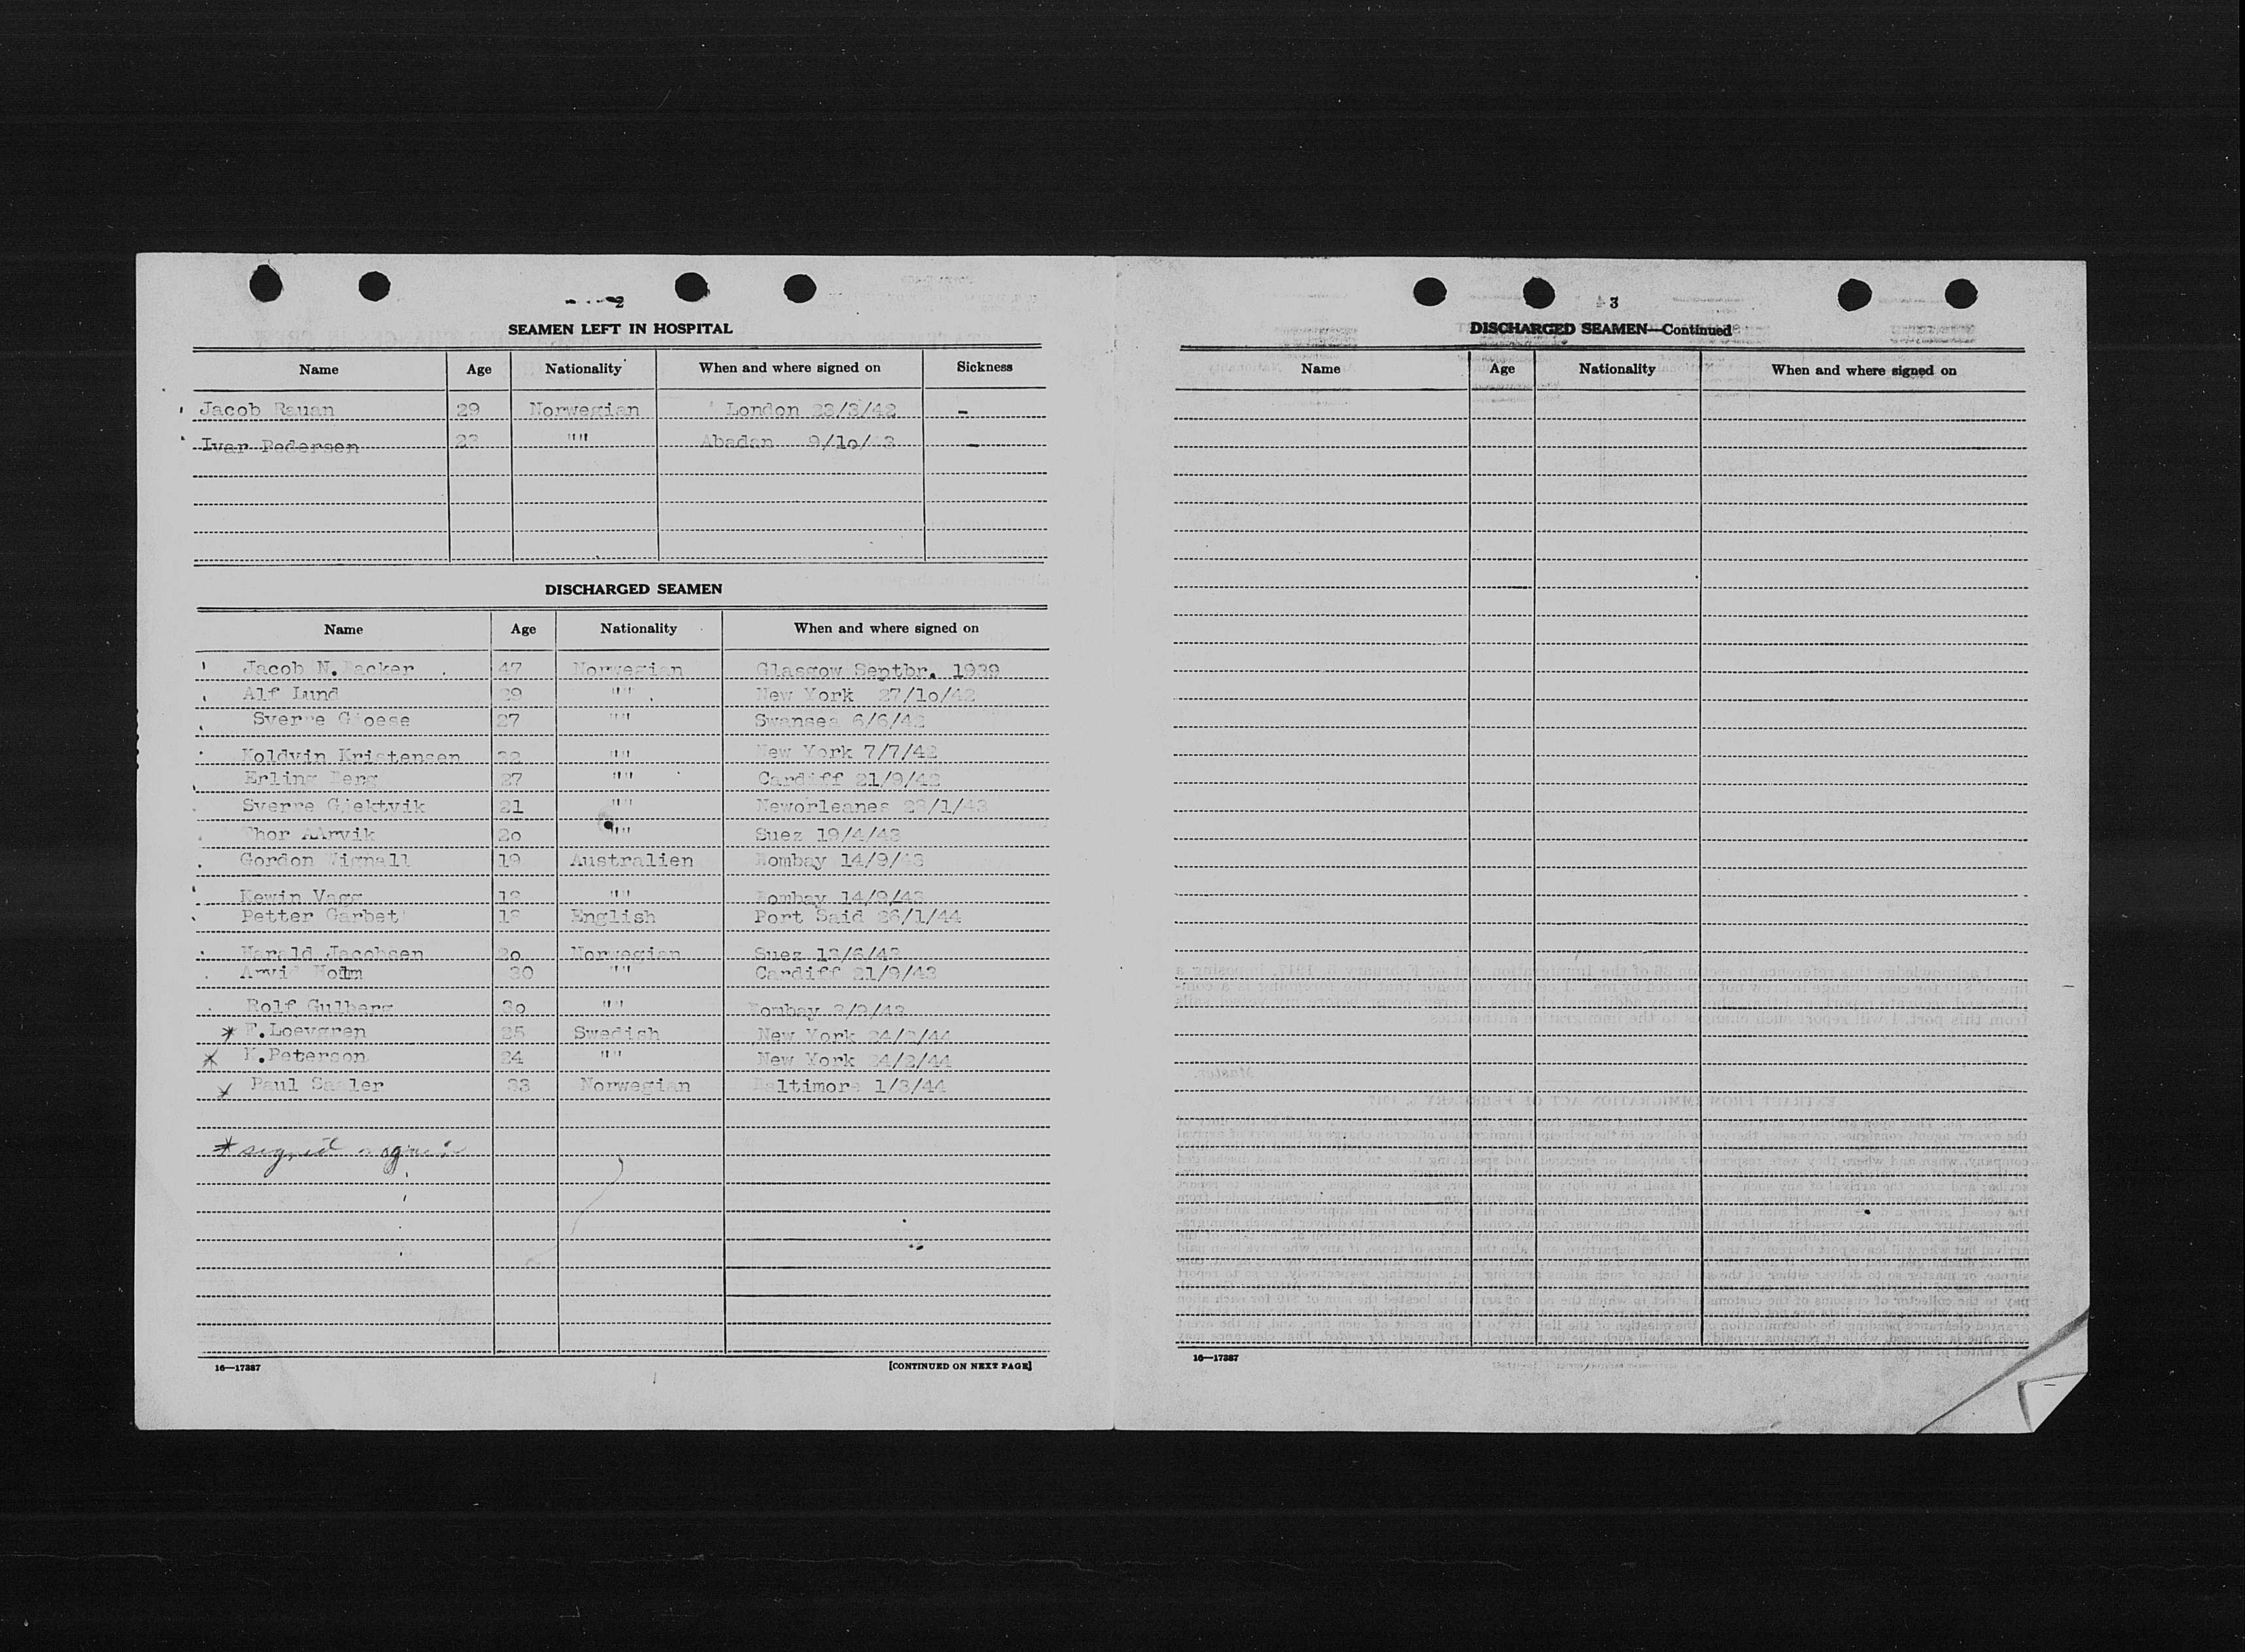 2
SEAMEN LEFT IN HOSPITAL
Name Age Nationality When and where signed on Sickness
Jacob Rauan 29 Norwegian London 23/3/42 -
Ivar Pedersen 23 "" Abadan 9/1o/ 3 -
DISCHARGED SEAMEN
Name Age Nationality When and where signed on
Jacob N. acker 47 Norwegian Glasgow Septbr. 1939
Alf Lund 29 "" New York 27/1o/42
Sverre Gjoese 27 "" Swansea 6/6/42
Koldvin Kristensen 32 "" New York 7/7/42
Erling Berg 27 "" Cardiff 21/9/42
Sverre Gjektvik 21 "" Neworleanes 28/1/43
Thor AArvik 2o "" Suez 19/4/43
Gordon Wignall 19 Australien Bombay 14/9/43
Kewin Vagg "" Bombay 14/9/43
Petter Garbet English Port Said 26/1/44
Harald Jacobsen 2o Norwegian Suez 13/6/43
Arvid Holm 30 "" Cardiff 21/9/43
Rolf Gulberg 3o "" Bombay 3/9/43
* Loevgren 25 Swedish New York 24/2/44
* K.Peterson 24 "" New York 24/2/44
* Paul 33 Norwegian Baltimore 1/3/44
* signed again
16—17387 [CONTINUED ON NEXT PAGE]
3
DISCHARGED SEAMEN—Continued
Name Age Nationality When and where signed on
16—17387